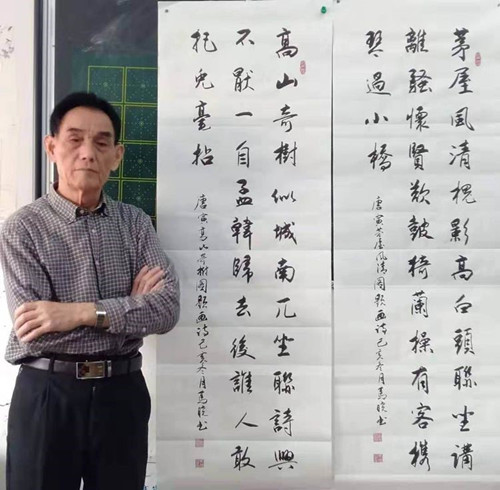 茅屋風清槐影高白頭聯坐講
離騷懷賢欵皷猗蘭操有客携
琴過小橋
唐寅茅屋風清圖題画詩己亥冬月書
高山奇樹似城南兀坐聯詩興
不厭一自孟韓歸去後誰人敢
把兔毫拈
唐寅高山奇樹圖題画詩己亥冬月書